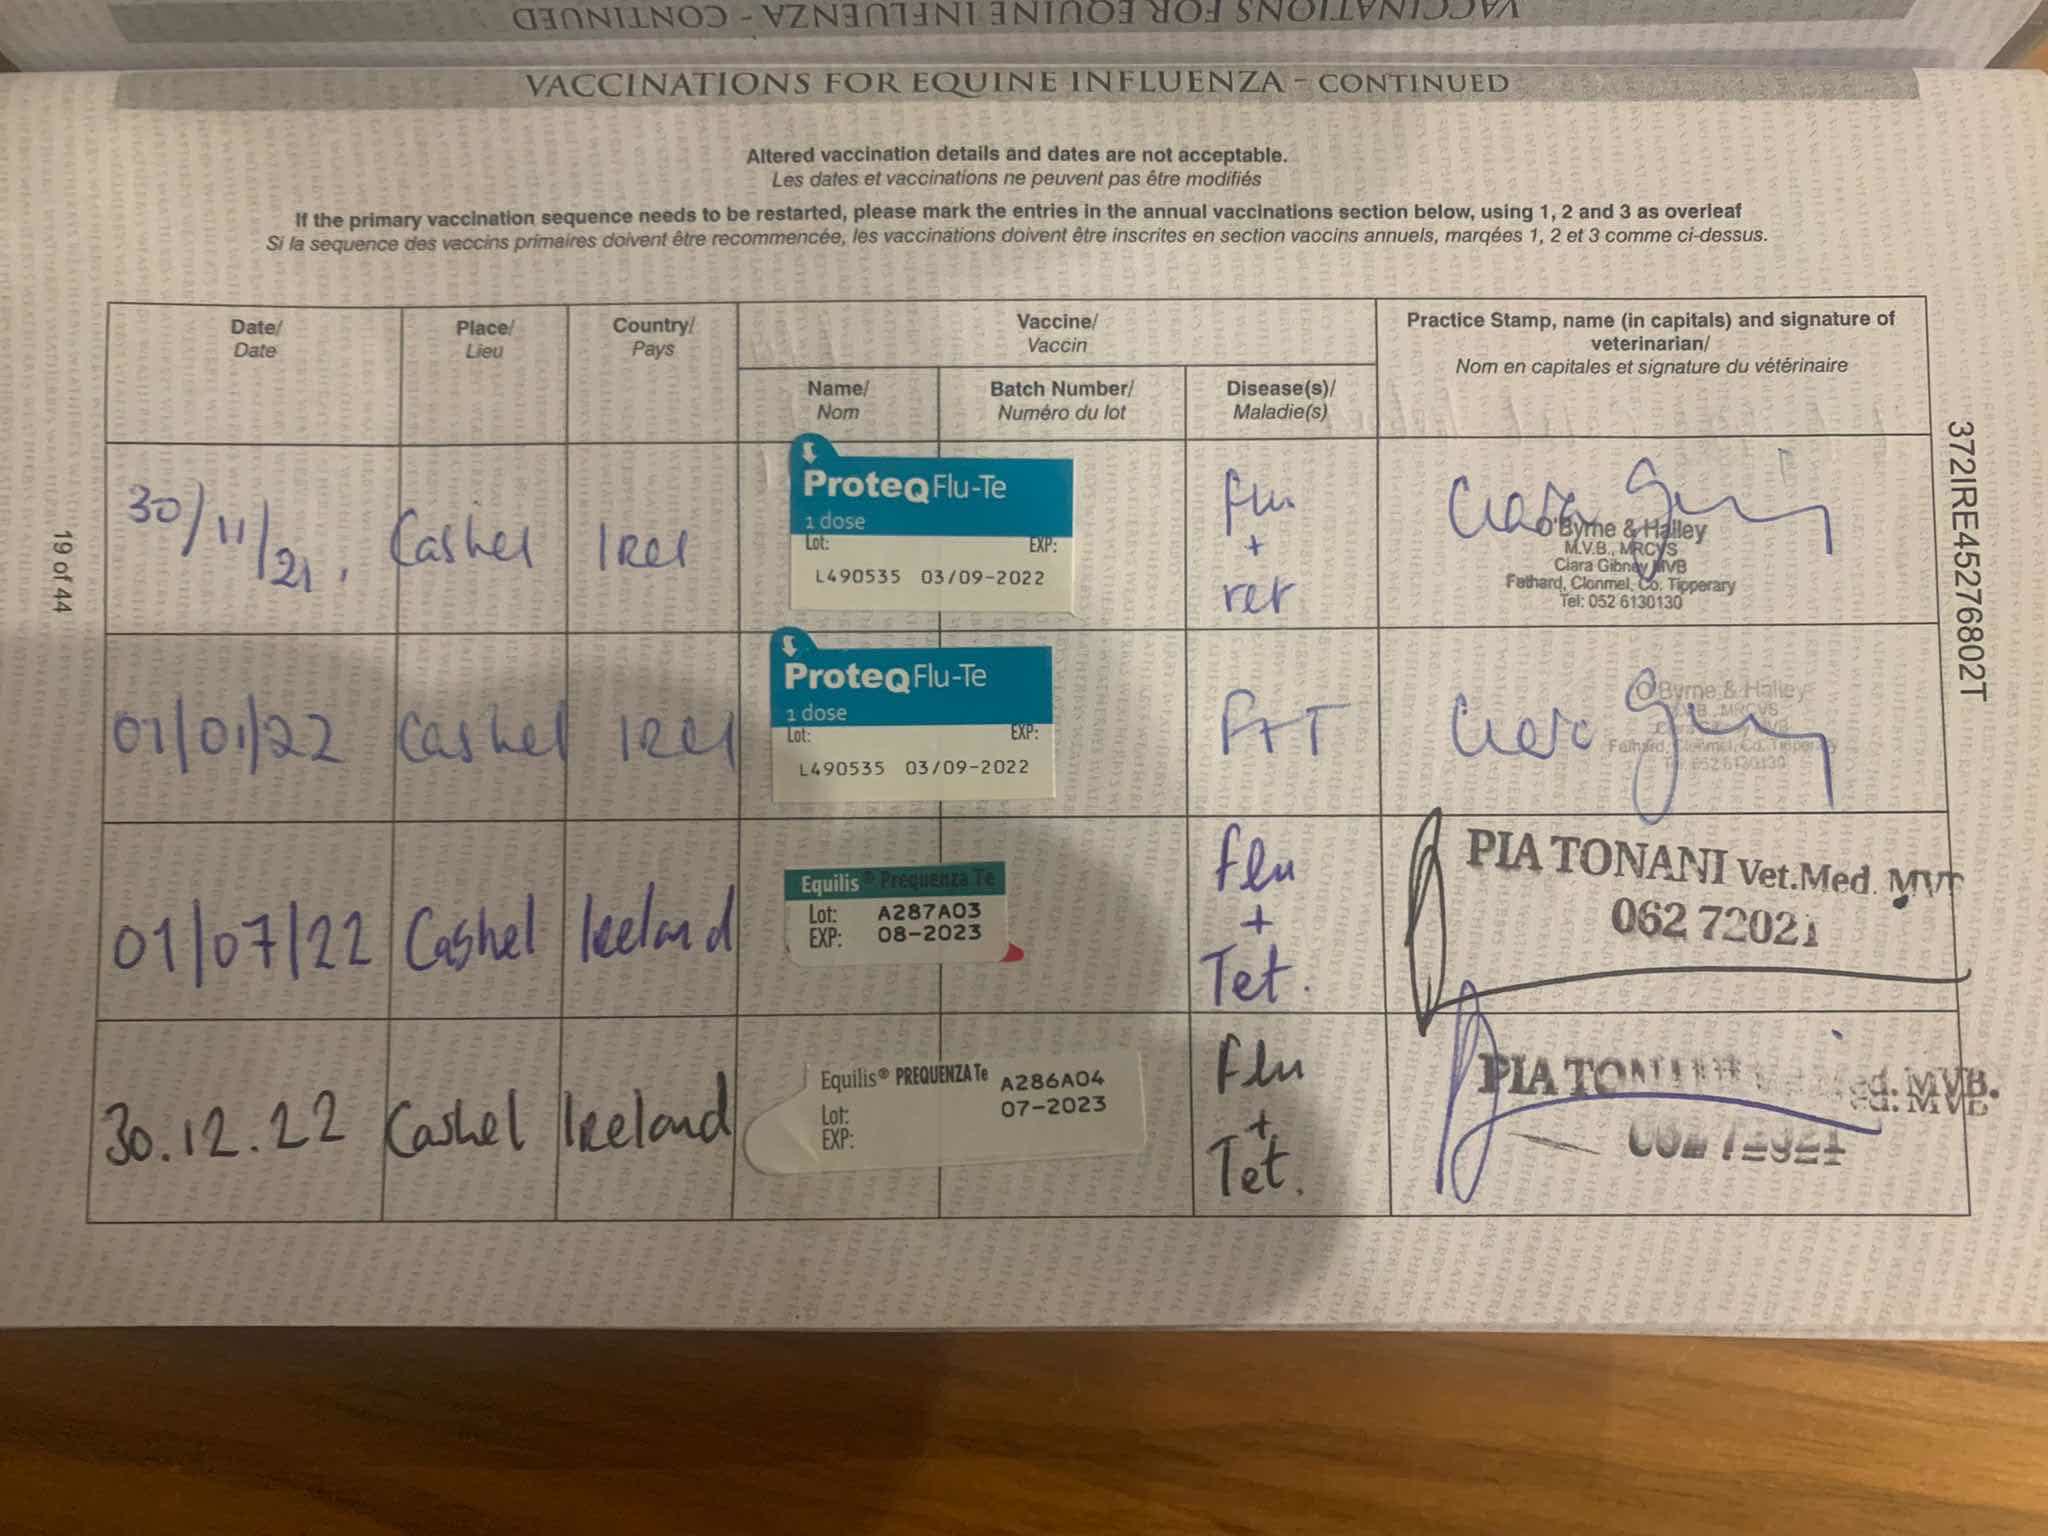 VACCINATIONS FOR EQUINE INFLUENZA - CONTINUED
VACCINATIONS FOR EQUINE INFLUENZA - CONTINUED
Altered vaccination details and dates are not acceptable.
Les dates et vaccinations ne peuvent pas être modifiés
If the primary vaccination sequence needs to be restarted, please mark the entries in the annual vaccinations section below, using 1, 2 and 3 as overleaf
Si la sequence des vaccins primaires doivent être recommencée, les vaccinations doivent être inscrites en section vaccins annuels, marqées 1, 2 et 3 comme ci-dessus.
Date/
Date
Place/
Lieu
Country/
Pays
Vaccine/
Vaccin
Name/
Nom
Batch Number/
Numéro du lot
Disease(s)/
Maladie(s)
Practice Stamp, name (in capitals) and signature of
veterinarian/
Nom en capitales et signature du vétérinaire
30/11/21.
Cashel
Irel
ProteqFlu-Te
1 dose
Lot: EXP:
L490535 03/09-2022
Flu
+
tet
O'Byrne & Halley
M.V.B., MRCVS
Ciara Gibney MVB
Fethard, Clonmel, Co. Tipperary
Tel: 052 6130130
01/01/22
Cashel
Irel
ProteqFlu-Te
1 dose
Lot: EXP:
L490535 03/09-2022
F+T
O'Byrne & Halley
MRCVS
Fethard, Clonmel, Co. Tipperary
052 6130130
01/07/22
Cashel
Ireland
Equilis® Prequenza Te
Lot: A287A03
EXP: 08-2023
Flu
+
Tet.
PIA TONANI Vet.Med. MVB
062 72021
30.12.22
Cashel
Ireland
Equilis® PREQUENZA Te A286A04
Lot: 07-2023
EXP:
Flu
+
Tet.
PIA TONANI MVB.
372IRE45276802T
19 of 44